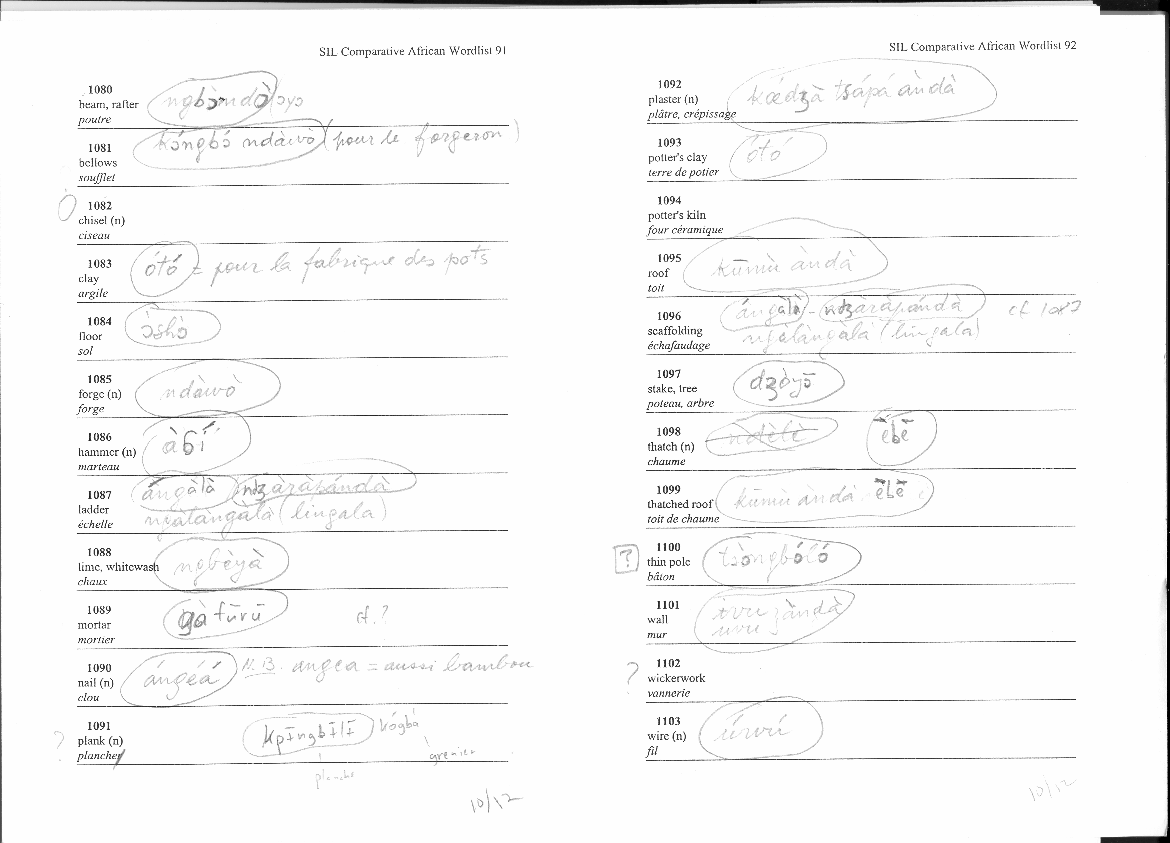 SIL Comparative African Wordlist 91
1080
beam, rafter ngbɔ̀mdɔ̀
poutre
1081 kɔ́ngbɔ́ ndàwò (pour le forgeron)
bellows
soufflet
1082
chisel (n)
ciseau
1083 ótó = pour la fabrique des pots
clay
argile
1084 ɔ̀shɔ̀
floor
sol
1085 ndàwò
forge (n)
forge
1086
hammer (n) àɓí
marteau
1087 ángàlà ndʒàràpándà
ladder
échelle ngàlàngàlà (lingala)
1088
lime, whitewash ngbèyà
chaux
1089
mortar gàfūrū cf. ?
mortier
1090 N.B. angea = aussi bambou
nail (n) ángéá
clou
? 1091 kpīngbīlī kógbá
plank (n)
plancher grenier
planche
10/12
SIL Comparative African Wordlist 92
1092
plaster (n) tsápá àndà
plâtre, crépissage
1093
potter's clay ótó
terre de potier
1094
potter's kiln
four céramique
1095
roof kūmù àndà
toit
1096 ángàlà - ndʒàràpándà cf 1087
scaffolding
échafaudage ngàlàngàlà (lingala)
1097
stake, tree dʒòyō
poteau, arbre
1098
thatch (n) ndèlè ēbē
chaume
1099
thatched roof kūmù àndà ēbē
toit de chaume
? 1100
thin pole tsòngbóló
bâton
1101
wall
mur
? 1102
wickerwork
vannerie
1103
wire (n) úrvú
fil
10/12